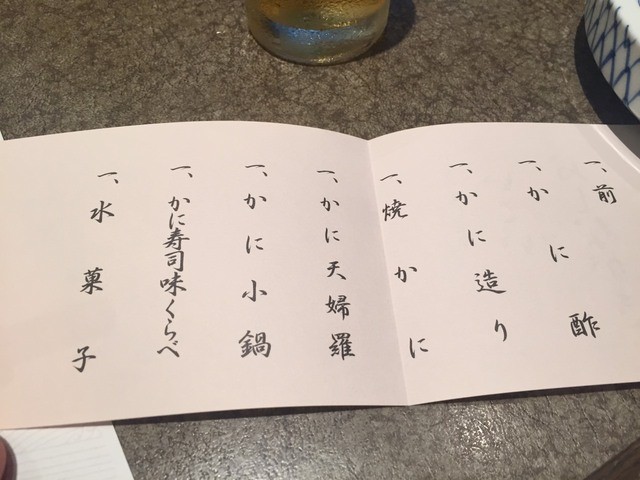 一、前
一、かに酢
一、かに造り
一、焼かに
一、かに天婦羅
一、かに小鍋
一、かに寿司味くらべ
一、水菓子